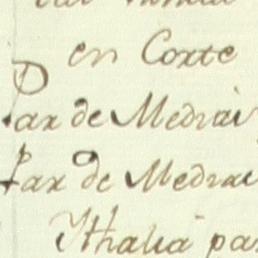 en Corte
Pax de Medrai
Pax de Medrai
Ythalia pa